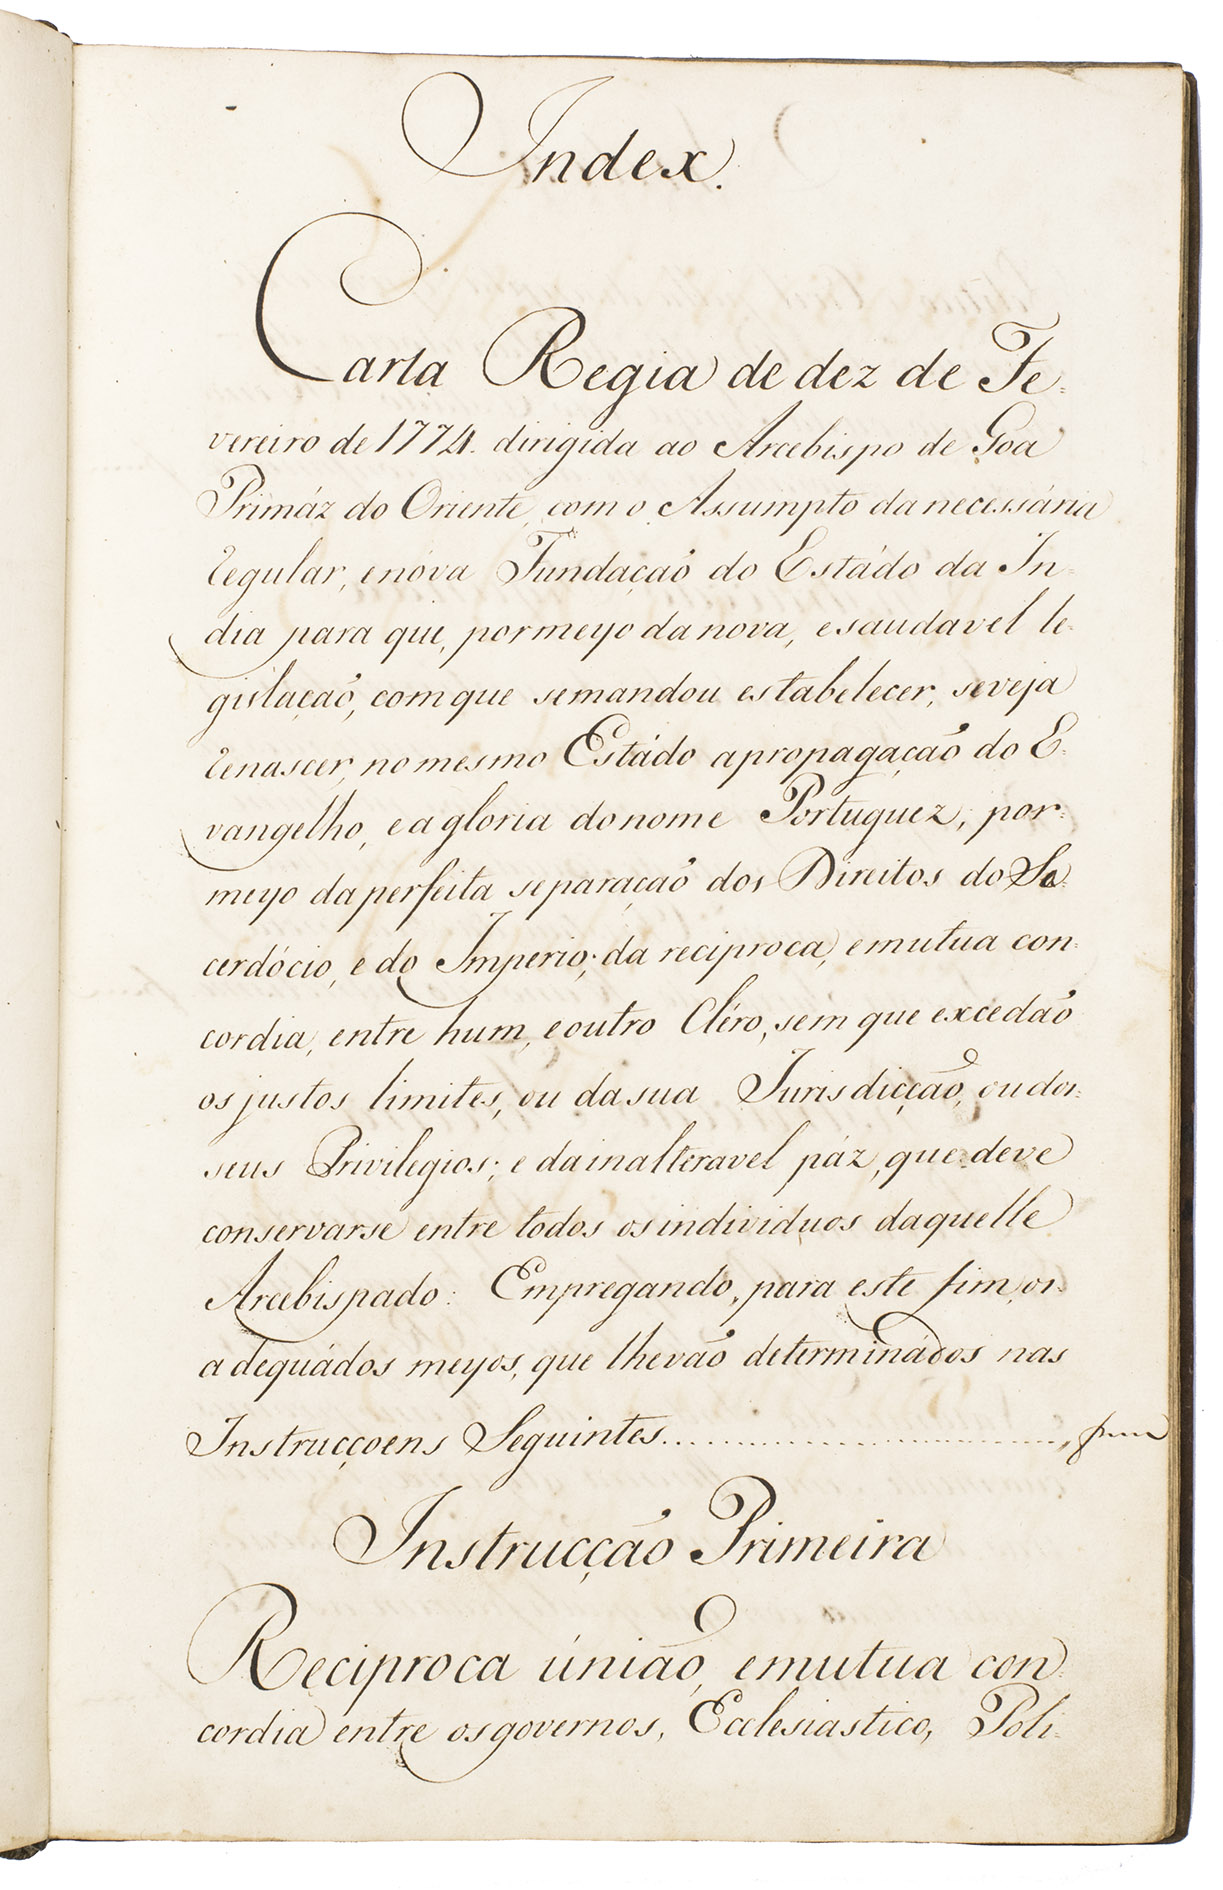 Index.
Carta Regia de dez de Fe=
vereiro de 1774. dirigida ao Arcebispo de Goa
Primáz do Oriente, com o Assumpto da necessária
regular, e nóva Fundação do Estádo da In=
dia para que, por meyo da nova, e saudavel le=
gislação, com que se mandou estabelecer, se veja
renascer, no mesmo Estádo a propagação do E=
vangelho, e a gloria do nome Portuguez; por=
meyo da perfeita separação dos Direitos do Sa=
cerdócio, e do Imperio; da reciproca, e mutua con=
cordia, entre hum, e outro Cléro, sem que excedão
os justos limites, ou da sua Jurisdicção, ou dos=
seus Privilegios; e da inalteravel páz, que deve
conservarse entre todos os individuos daquelle
Arcebispado: Empregando, para este fim, os=
adequádos meyos, que lhe vão determinádos nas
Instrucçoens Seguintes
Instrucção Primeira
Reciproca únião, e mutua con=
cordia entre os governos, Ecclesiastico, Poli=